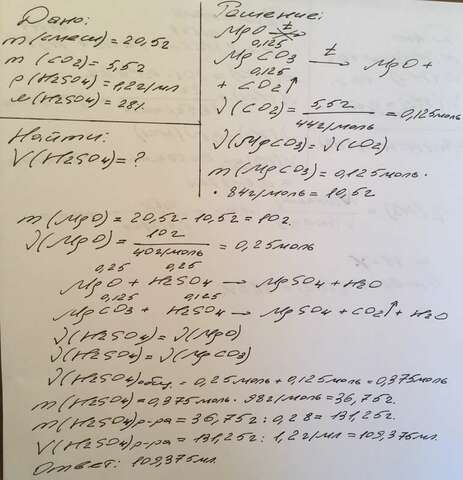 Дано:
m(смеси)=20,5г
m(CO2)=5,5г
ρ(H2SO4)=1,2г/мл
ω(H2SO4)=28%
Найти:
V(H2SO4)=?
Решение:
MgO t
0,125
MgCO3 t→ MgO+
0,125
+ CO2↑
ν(CO2)= 5,5г/44г/моль =0,125моль
ν(MgCO3)=ν(CO2)
m(MgCO3)=0,125моль·
·84г/моль=10,5г
m(MgO)=20,5г-10,5г=10г.
ν(MgO)= 10г/40г/моль = 0,25моль
0,25 0,25
MgO + H2SO4 → MgSO4+H2O
0,125 0,125
MgCO3 + H2SO4 → MgSO4+CO2↑+H2O
ν(H2SO4)=ν(MgO)
ν(H2SO4)=ν(MgCO3)
ν(H2SO4)общ.=0,25моль+0,125моль=0,375моль
m(H2SO4)=0,375моль·98г/моль=36,75г.
m(H2SO4)р-ра=36,75г:0,28=131,25г.
V(H2SO4)р-ра=131,25г:1,2г/мл=109,375мл.
Ответ: 109,375мл.